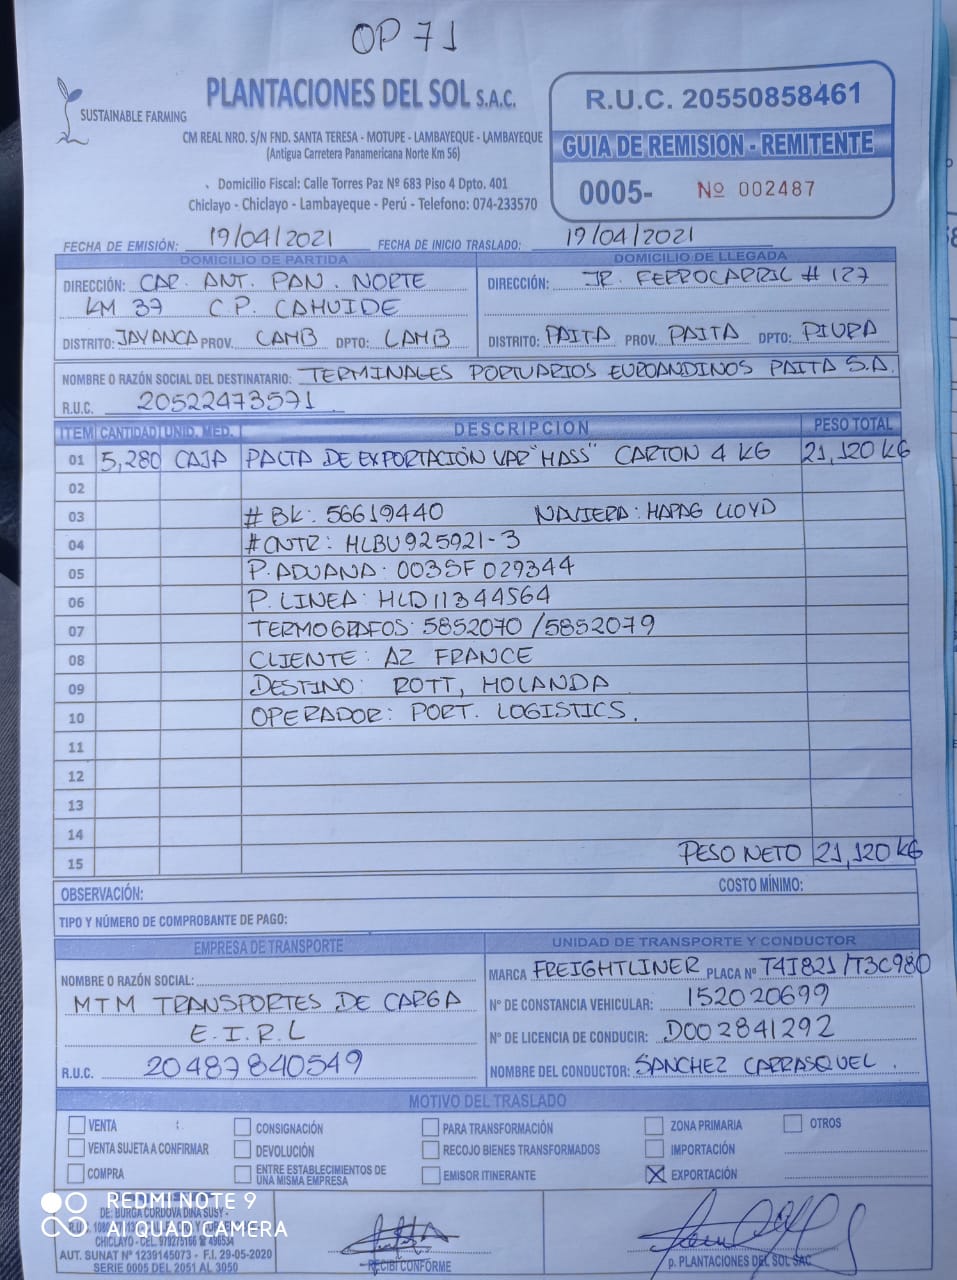 OP 71
SUSTAINABLE FARMING
PLANTACIONES DEL SOL S.A.C.
CM REAL NRO. S/N FND. SANTA TERESA - MOTUPE - LAMBAYEQUE - LAMBAYEQUE
(Antigua Carretera Panamericana Norte Km 56)
Domicilio Fiscal: Calle Torres Paz Nº 683 Piso 4 Dpto. 401
Chiclayo - Chiclayo - Lambayeque - Perú - Telefono: 074-233570
R.U.C. 20550858461
GUIA DE REMISION - REMITENTE
0005- Nº 002487
FECHA DE EMISIÓN: 19/04/2021 FECHA DE INICIO TRASLADO: 19/04/2021
DOMICILIO DE PARTIDA
DIRECCIÓN: CAR. ANT. PAN. NORTE
KM 37 C.P. CAHUIDE
DISTRITO: JAYANCA PROV. LAMB DPTO: LAMB
DOMICILIO DE LLEGADA
DIRECCIÓN: JR. FERROCARRIL # 127
DISTRITO: PAITA PROV. PAITA DPTO: PIURA
NOMBRE O RAZÓN SOCIAL DEL DESTINATARIO: TERMINALES PORTUARIOS EUROANDINOS PAITA S.A.
R.U.C. 20522473571
ITEM CANTIDAD UNID. MED. DESCRIPCION PESO TOTAL
01 5,280 CAJA PALTA DE EXPORTACIÓN VAR "HASS" CARTON 4 KG 21,120 KG
02
03 # BK: 56619440 NAVIERA: HAPAG LLOYD
04 # CNTR: HLBU 925921-3
05 P. ADUANA: 0035F029344
06 P. LINEA: HLD11344564
07 TERMOGRAFOS: 5852070 / 5852079
08 CLIENTE: AZ FRANCE
09 DESTINO: ROTT, HOLANDA
10 OPERADOR: PORT. LOGISTICS.
11
12
13
14
15 PESO NETO 21,120 KG
OBSERVACIÓN: COSTO MÍNIMO:
TIPO Y NÚMERO DE COMPROBANTE DE PAGO:
EMPRESA DE TRANSPORTE
NOMBRE O RAZÓN SOCIAL:
MTM TRANSPORTES DE CARGA
E.I.R.L
R.U.C. 20487840549
UNIDAD DE TRANSPORTE Y CONDUCTOR
MARCA FREIGHTLINER PLACA Nº T4I821 / T3C980
Nº DE CONSTANCIA VEHICULAR: 152020699
Nº DE LICENCIA DE CONDUCIR: D002841292
NOMBRE DEL CONDUCTOR: SANCHEZ CARRASQUEL.
MOTIVO DEL TRASLADO
VENTA CONSIGNACIÓN PARA TRANSFORMACIÓN ZONA PRIMARIA OTROS
VENTA SUJETA A CONFIRMAR DEVOLUCIÓN RECOJO BIENES TRANSFORMADOS IMPORTACIÓN
COMPRA ENTRE ESTABLECIMIENTOS DE UNA MISMA EMPRESA EMISOR ITINERANTE X EXPORTACIÓN
REDMI NOTE 9
AI QUAD CAMERA
DE: BURGA CORDOVA DINA SUSY -
AUT. SUNAT Nº 1239145073 - F.I. 29-05-2020
SERIE 0005 DEL 2051 AL 3050
RECIBI CONFORME
p. PLANTACIONES DEL SOL SAC